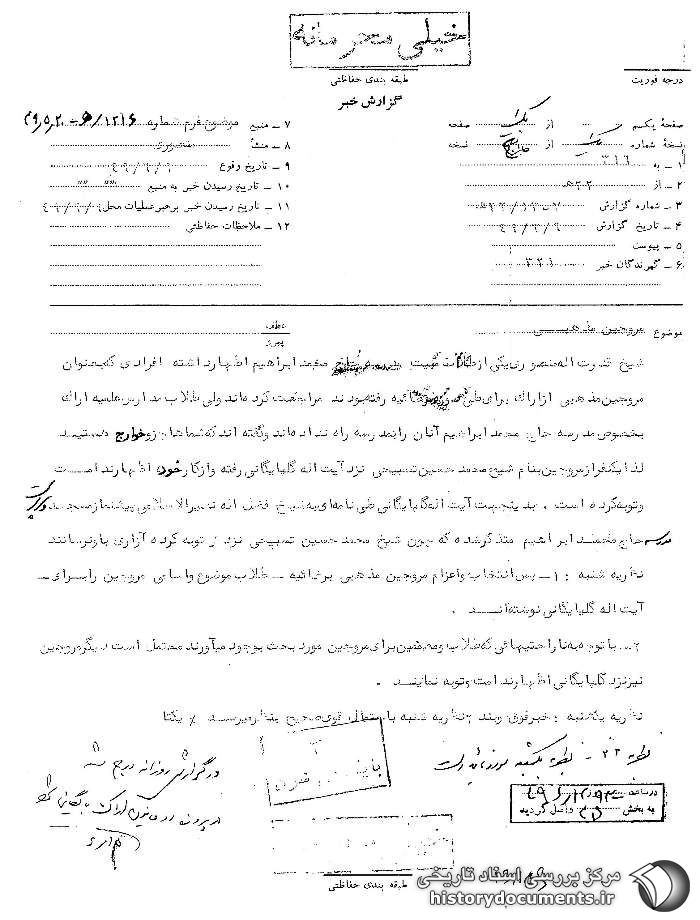 خیلی محرمانه
طبقه بندی حفاظتی
درجه فوریت
گزارش خبر
صفحهٔ یکم از یک صفحه
نسخهٔ شماره یک از نسخه
۱ ـ به ۳۱۶
۲ ـ از ۲۲ه
۳ ـ شماره گزارش
۴ ـ تاریخ گزارش ۴۹/۶/۹
۵ ـ پیوست
۶ ـ گیرندگان خبر ۳۲۱
۷ ـ منبع موضوع فرم شماره
۸ ـ منشأ منصوری
۹ ـ تاریخ وقوع
۱۰ ـ تاریخ رسیدن خبر به منبع " "
۱۱ ـ تاریخ رسیدن خبر برهبرعملیات محل
۱۲ ـ ملاحظات حفاظتی
موضوع مروجین مذهبی
عطف
پیرو
شیخ قدرت اله منصوری یکی از طلاب محمد ابراهیم اظهار داشته افرادی که بعنوان
مروجین مذهبی از اراک برای رفته بودند مراجعت کرده اند ولی طلاب مدارس علمیه اراک
بخصوص مدرسه حاج محمد ابراهیم آنان را بمدرسه راه نداده اند و گفته اند که شما جزو خوارج هستید
لذا یکنفر از مروجین بنام شیخ محمد حسین تسبیحی نزد آیت اله گلپایگانی رفته و از کار خود اظهار ندامت
و توبه کرده است . بدینجهت آیت اله گلپایگانی طی نامه ای به شیخ فضل اله نصیرالاسلامی پیشنماز مسجد
مدرسه حاج محمد ابراهیم متذکر شده که چون شیخ محمد حسین تسبیحی نزد از توبه کرده آزاری باو نرسانند
نظریه شنبه : ۱ ـ پس انتخاب و اعزام مروجین مذهبی برضائیه ـ طلاب موضوع و اسامی مروجین را برای ـ
آیت اله گلپایگانی نوشته اند .
۲ـ با توجه به ناراحتیهائی که طلاب و معممین برای مروجین مورد بحث بوجود میآورند محتمل است دیگر مروجین
نیز نزد گلپایگانی اظهار ندامت و توبه نمایند .
نظریه یکشنبه : خبر فوق و بند ۲ نظریه شنبه با احتمال قوی صحیح بنظر میرسد / یکتا
نظریه ۲۲ ـ نظریه یکشنبه مورد تأیید است
در گزارش روزانه درج شد
بایگانی شود
در ساعت
به بخش واصل گردید
طبقه بندی حفاظتی
مرکز بررسی اسناد تاریخی
historydocuments.ir